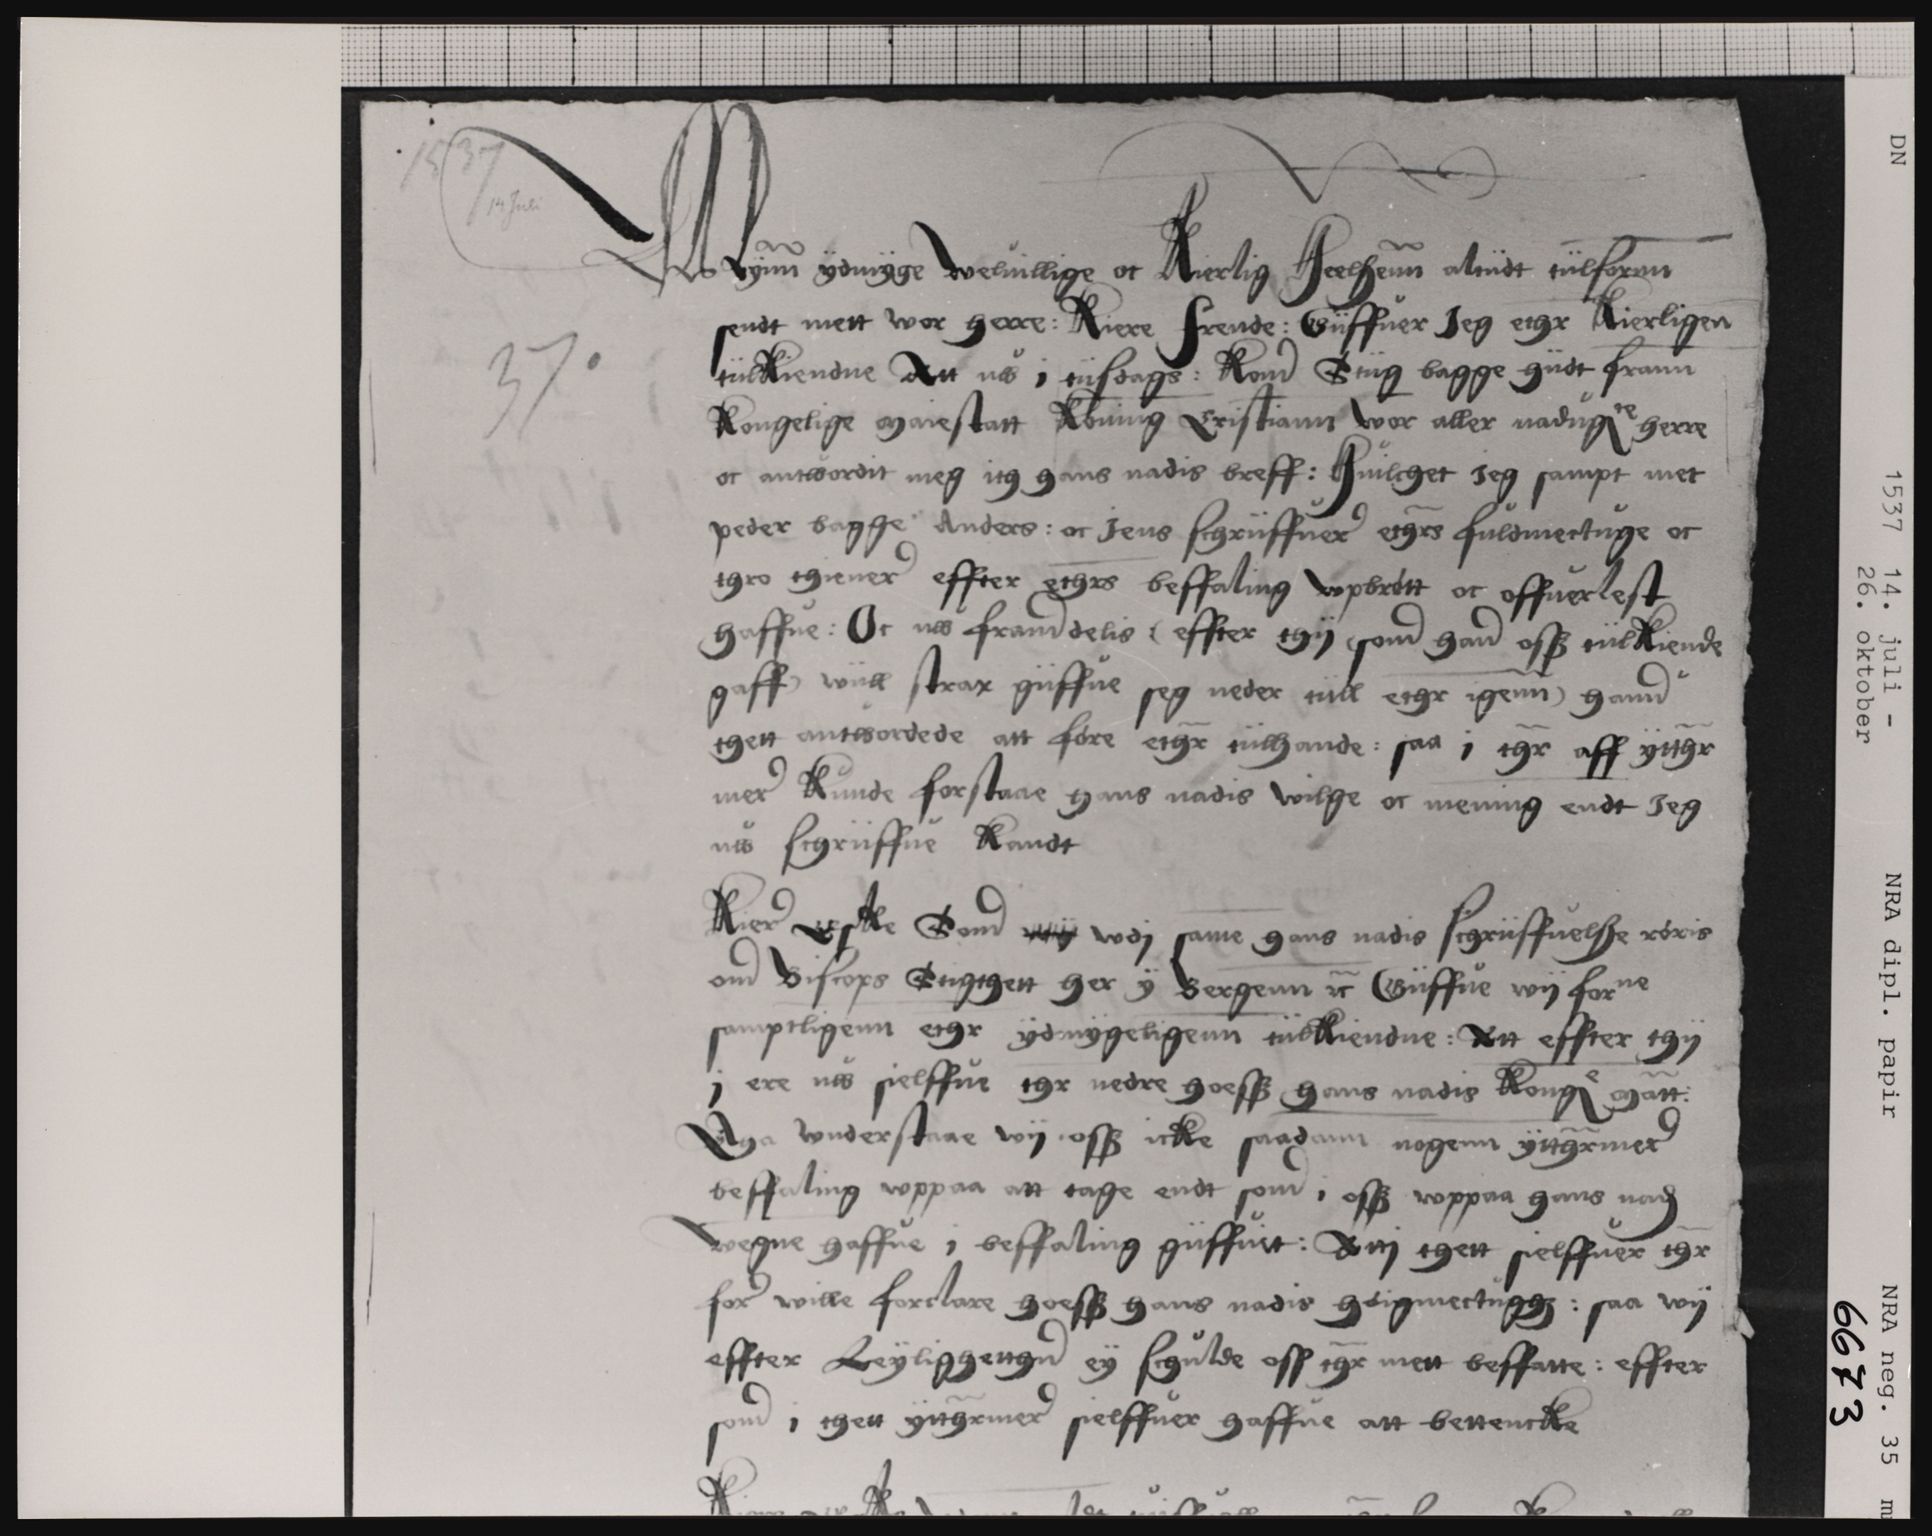 1537
14 Juli
37.
Mynn ydmyge welwillige oc Kierlig Heelßenn altiidt tiilfornn
sendt mett wor herre: Kiere frende: Giiffuer Jeg ethr Kierligen
tiilKiendne Att nw i tiisdags: Kom Stiig bagge hiidt framn
Kongelige Maiestatt Koning Cristiann wor aller nadugste herre
oc antwordit meg ith hans nadis breff: Huilchet Jeg sampt met
peder bagge Anders: oc Jens schriiffuer ethrs fuldmectuge oc
thro thiener effter ethrs beffaling wpbrott oc offuerlest
haffue: Oc nw framdelis (effter thij som han oss tiilKiende
gaff) wiill strax giiffue seg neder tiill ethr igenn) hannd
thett antwordede att føre ethr tiilhande: saa i thr aff ytthr
mer Kunde forstaae hans nadis wilge oc mening endt Jeg
nw schriiffue Kandt
Kier Eske Som wdj same hans nadis schriiffuelsse røris
om Biscops Stigthett her y Bergenn etc Giiffue wij forne
samptligenn ethr ydmygeligenn tiilKiendne: Att effter thij
j ere nw sielffue thr nedre hoess hans nadis Konge Matt:
Tha wnderstaae wij oss icke saadann nogenn ytthrmer
beffaling wppaa att tage endt som i oss wppaa hans nad
wegne haffue i beffaling giiffuet: Atj thett sielffuer thr
for wille forclare hoess hans nadis høigmectughet: saa wij
effter Leylighetthen ey schulde oss thr mett beffatte: effter
som i thett ytthrmer sielffuer haffue att bettencke
DN
1537 14. juli -
26. oktober
NRA dipl. papir
NRA neg. 35 m
6673